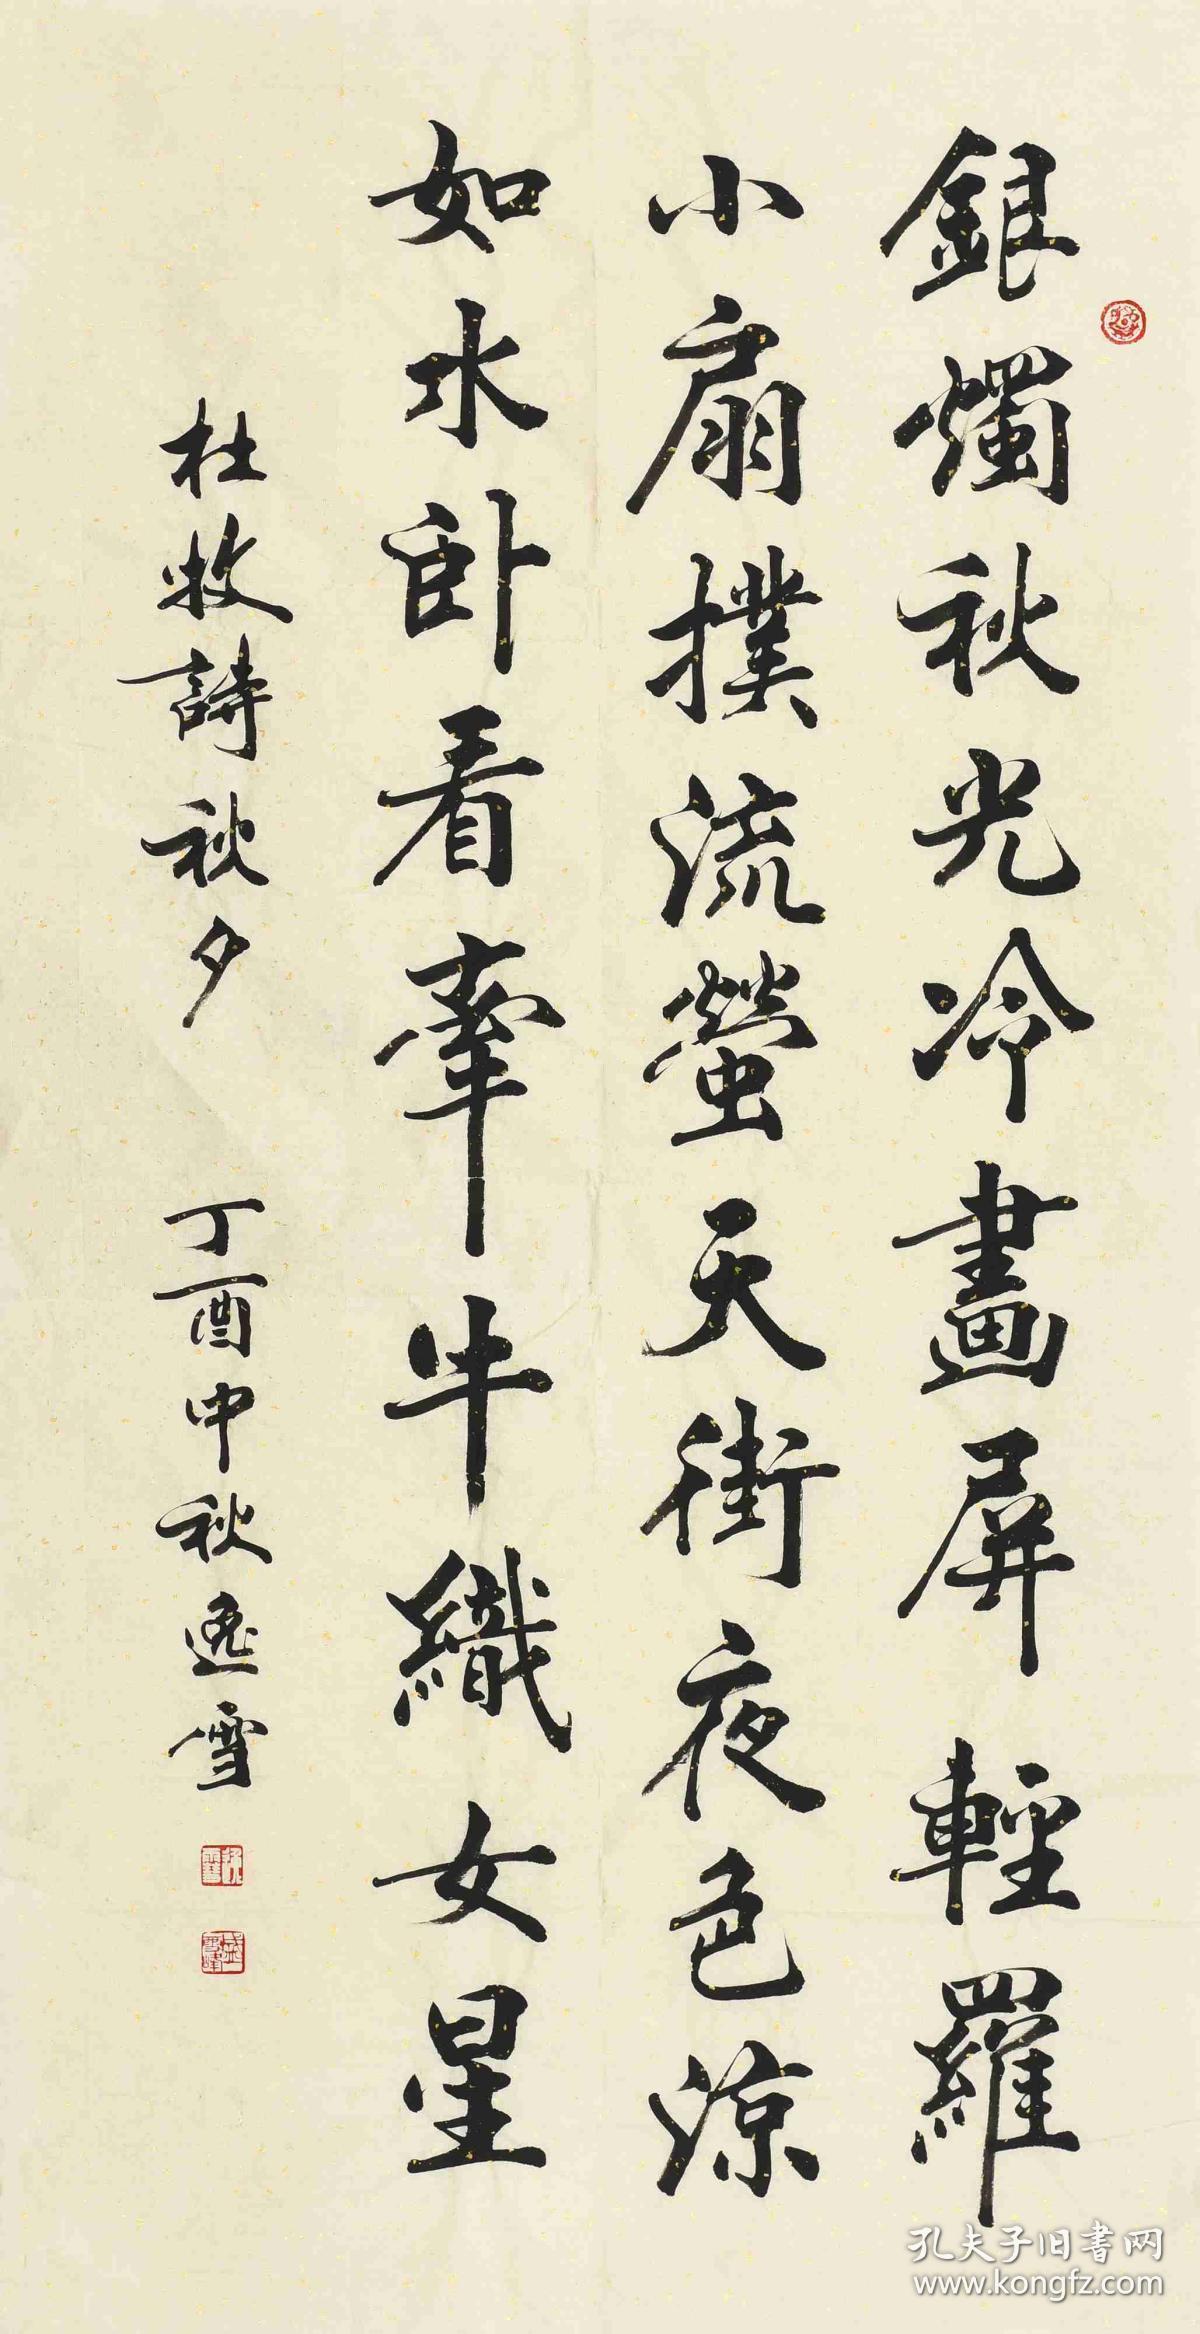 銀燭秋光冷畫屏輕羅
小扇撲流螢天街夜色涼
如水卧看牽牛織女星
杜牧詩秋夕 丁酉中秋逸雪
孔夫子旧书网
www.kongfz.com